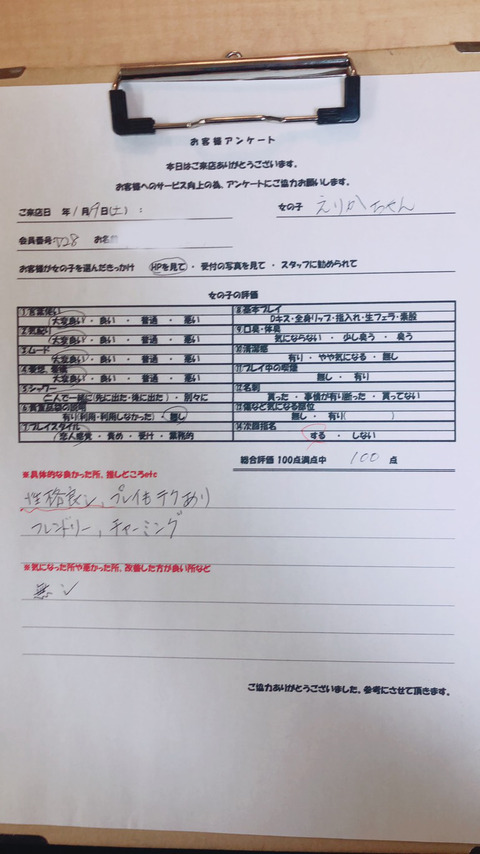 お客様アンケート
本日はご来店ありがとうございます。
お客様へのサービス向上の為、アンケートにご協力お願いします。
ご来店日 年 1月 9日(土) : 女の子 えりかちゃん
会員番号 728 お名前
お客様が女の子を選んだきっかけ HPを見て ・ 受付の写真を見て ・ スタッフに勧められて
女の子の評価
1 言葉使い
大変良い ・ 良い ・ 普通 ・ 悪い
2 気配り
大変良い ・ 良い ・ 普通 ・ 悪い
3 ムード
大変良い ・ 良い ・ 普通 ・ 悪い
4
大変良い ・ 良い ・ 普通 ・ 悪い
5 シャワー
二人で一緒に(先に出た・後に出た) ・ 別々に
6 貴重品袋の説明
有り(利用・利用しなかった) ・ 無し
7 プレイスタイル
恋人感覚 ・ 責め ・ 受け ・ 業務的
8 基本プレイ
Dキス・全身リップ・指入れ・生フェラ・素股
9 口臭・体臭
気にならない ・ 少し臭う ・ 臭う
10 清潔感
有り ・ やや気になる ・ 無し
11 プレイ中の喫煙
無し ・ 有り
12 名刺
貰った ・ 事情が有り断った ・ 貰ってない
13 傷など気になる部位
無し ・ 有り( )
14 次回指名
する ・ しない
総合評価 100点満点中 100 点
※具体的な良かった所、推しどころetc
性格良し、プレイもテクあり
フレンドリー、チャーミング
※気になった所や悪かった所、改善した方が良い所など
無し
ご協力ありがとうございました。参考にさせて頂きます。